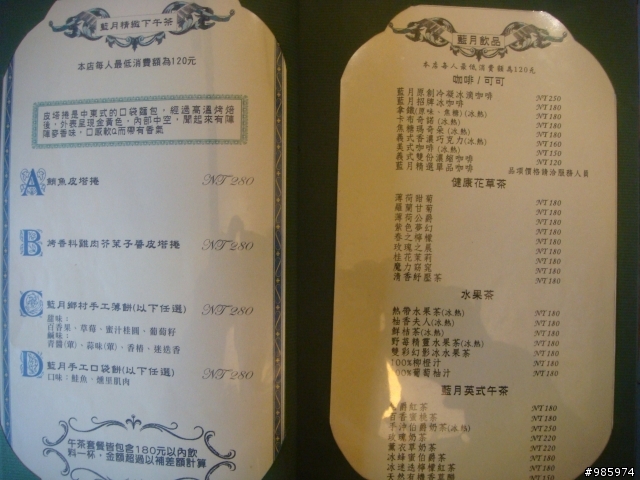 藍月精緻下午茶
本店每人最低消費額為120元
皮塔捲是中東式的口袋麵包，經過高溫烤焙
後，外表呈現金黃色，內部中空，聞起來有陣
陣麥香味，口感軟Q而帶有香氣
A 鮪魚皮塔捲 NT 280
B 烤香料雞肉芥茉子醬皮塔捲 NT 280
C 藍月鄉村手工薄餅(以下任選) NT 280
甜味：
百香果、草莓、蜜汁桂圓、葡萄籽
鹹味：
青醬(葷)、蒜味(葷)、香椿、迷迭香
D 藍月手工口袋餅(以下任選) NT 280
口味：鮭魚、燻里肌肉
午茶套餐皆包含180元以內飲
料一杯，金額超過以補差額計算
藍月飲品
本店每人最低消費額為120元
咖啡/可可
藍月原創冷凝冰滴咖啡 NT 250
藍月招牌冰咖啡 NT 180
拿鐵(原味、焦糖)(冰熱) NT 180
卡布奇諾(冰熱) NT 180
焦糖瑪奇朵(冰熱) NT 180
義式香濃巧克力(冰熱) NT 160
美式咖啡(冰熱) NT 150
義式雙份濃縮咖啡 NT 120
藍月精選單品咖啡 品項價格請洽服務人員
健康花草茶
薄荷甜菊 NT 180
羅蘭甘菊 NT 180
薄荷公爵 NT 180
紫色夢幻 NT 180
春之檸檬 NT 180
玫瑰之晨 NT 180
桂花茉莉 NT 180
魔力窈窕 NT 180
清香紓壓茶 NT 180
水果茶
熱帶水果茶(冰熱) NT 180
柚香夫人(冰熱) NT 180
鮮桔茶(冰熱) NT 180
野莓精靈水果茶(冰熱) NT 180
雙彩幻影冰水果茶 NT 180
100%柳橙汁 NT 180
100%葡萄柚汁 NT 180
藍月英式午茶
伯爵紅茶 NT 180
百香蜜桃茶 NT 180
不沖伯爵奶茶(冰熱) NT 250
玫瑰奶茶 NT 220
薰衣草奶茶 NT 220
冰蜂蜜伯爵茶 NT 180
冰迷迭檸檬紅茶 NT 180
#985974